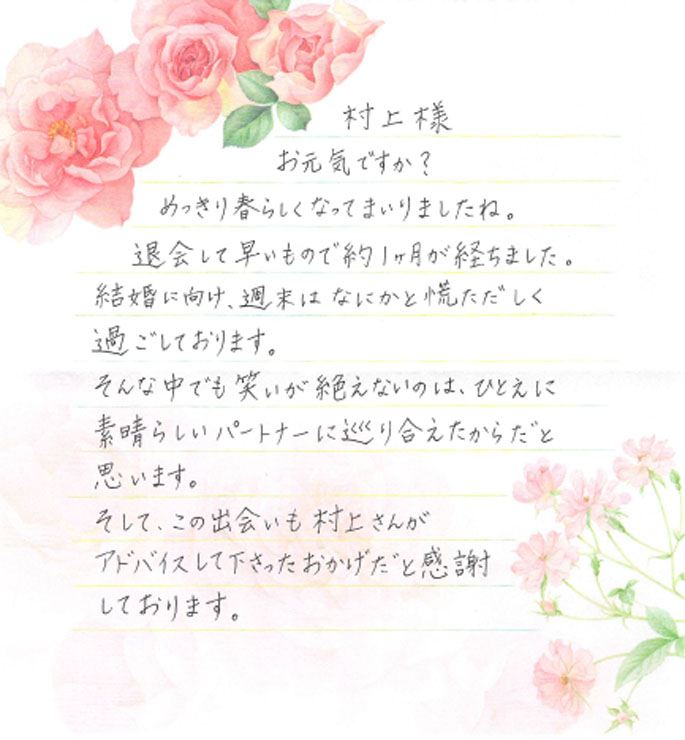 村上様
お元気ですか？
めっきり春らしくなってまいりましたね。
退会して早いもので約1ヶ月が経ちました。
結婚に向け、週末はなにかと慌ただしく
過ごしております。
そんな中でも笑いが絶えないのは、ひとえに
素晴らしいパートナーに巡り合えたからだと
思います。
そして、この出会いも村上さんが
アドバイスして下さったおかげだと感謝
しております。